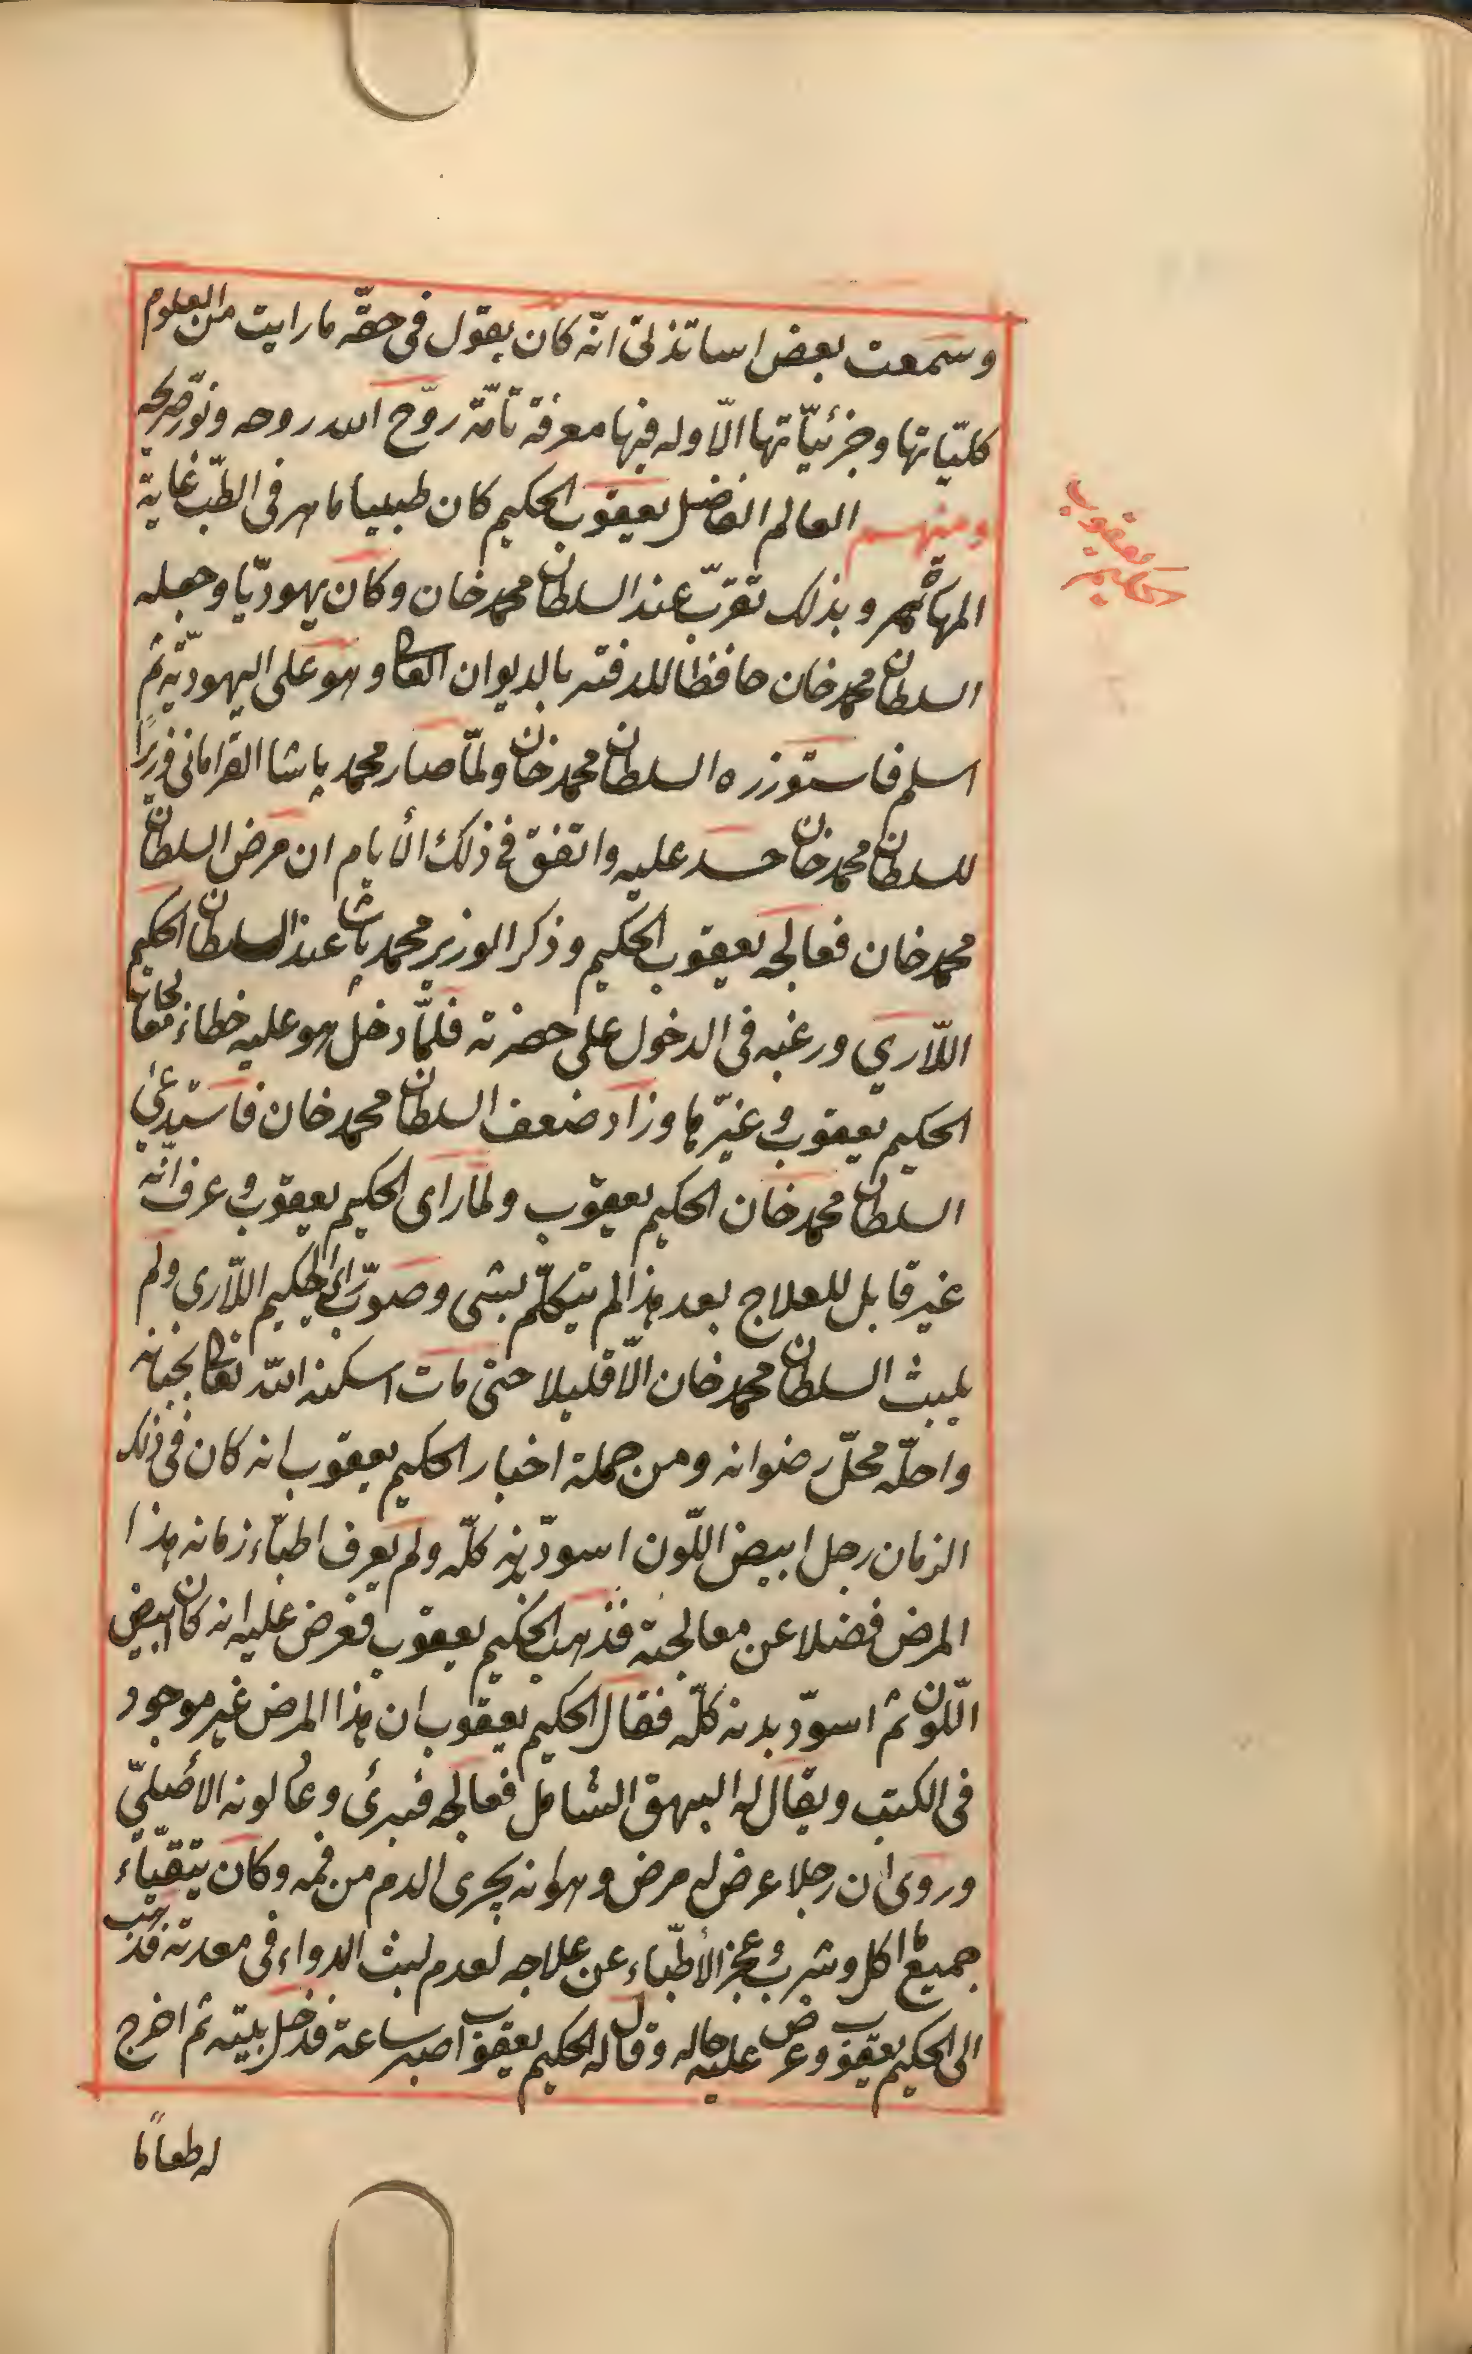 وسمعت بعض اساتذتى انّه كان يقول فى حقّه ما رايت من العلوم
كلّيّاتها وجزئيّاتها الّا وله فيها معرفة تامّة روّح الله روحه ونوّر ضريحه
ومنهم العالم الفاضل يعقوب الحكيم كان طبيبا ماهر فى الطبّ غاية
يعقوب
الحكيم
المهارة وبذلك تقرّب عند السلطان محمد خان وكان يهوديّا وجعله
السلطان محمد خان حافظا للدفتر بالديوان العالى وهو على اليهوديّة ثم
اسلم فاستوزره السلطان محمد خان ولمّا صار محمد پاشا القرامانى وزيراً
للسلطان محمد خان حسد عليه واتفق فى ذلك الأيام ان مرض السلطان
محمد خان فعالجه يعقوب الحكيم وذكر الوزير محمد پاشا عند السلطان الحكيم
اللّاري ورغبه فى الدخول على حضرته فلمّا دخل هو عليه خطاء معالجات
الحكيم يعقوب وغيّرها وزاد ضعف السلطان محمد خان فاستدعى
السلطان محمد خان الحكيم يعقوب ولما راى الحكيم يعقوب وعرف انّه
غير قابل للعلاج بعد هذا لم يتكلّم بشى وصوّب راى الحكيم اللّارى ولم
يلبث السلطان محمد خان الّا قليلا حتى مات اسكنه الله تعالى بجنانه
واحلّه محلّ رضوانه ومن جملة اخبار الحكيم يعقوب انه كان فى ذلك
الزمان رجل ابيض اللّون اسودّ بدنه كلّه ولم يعرف اطبّاء زمانه هذا
المرض فضلا عن معالجته فذهب الحكيم يعقوب فعرض عليه انه كان ابيض
اللّون ثم اسودّ بدنه كلّه فقال الحكيم يعقوب ان هذا المرض غير موجود
فى الكتب ويقال له البهق الشامل فعالجه فبرئ وعاد لونه الأصلىّ
وروى ان رجلا عرض له مرض وهو انه يجرى الدم من فمه وكان يتقيّاء
جميع ما اكل وشرب وعجز الأطبّاء عن علاجه لعدم لبث الدواء فى معدته فذهب
الى الحكيم يعقوب وعرض عليه حاله وقال له الحكيم يعقوب اصبر ساعة فدخل بيته ثم اخرج
له طعاماً